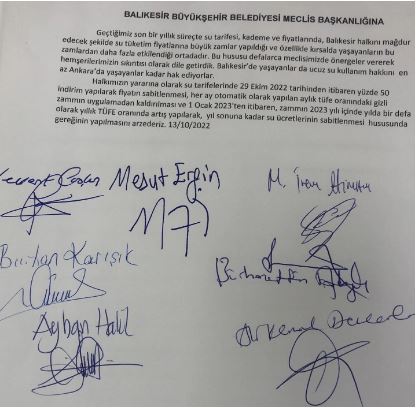 BALIKESİR BÜYÜKŞEHİR BELEDİYESİ MECLİS BAŞKANLIĞINA
Geçtiğimiz son bir yıllık süreçte su tarifesi, kademe ve fiyatlarında, Balıkesir halkını mağdur
edecek şekilde su tüketim fiyatlarına büyük zamlar yapıldığı ve özellikle kırsalda yaşayanların bu
zamlardan daha fazla etkilendiği ortadadır. Bu hususu defalarca meclisimizde önergeler vererek
hemşerilerimizin sıkıntısı olarak dile getirdik. Balıkesir'de yaşayanlar da ucuz su kullanım hakkını en
az Ankara'da yaşayanlar kadar hak ediyorlar.
Halkımızın yararına olarak su tarifelerinde 29 Ekim 2022 tarihinden itibaren yüzde 50
indirim yapılarak fiyatın sabitlenmesi, her ay otomatik olarak yapılan aylık tüfe oranındaki gizli
zammın uygulamadan kaldırılması ve 1 Ocak 2023'ten itibaren, zammın 2023 yılı içinde yılda bir defa
olarak yıllık TÜFE oranında artış yapılarak, yıl sonuna kadar su ücretlerinin sabitlenmesi hususunda
gereğinin yapılmasını arzederiz. 13/10/2022
Mesut Ergin
M. İren
Burhan Karışık
Ayhan Halil